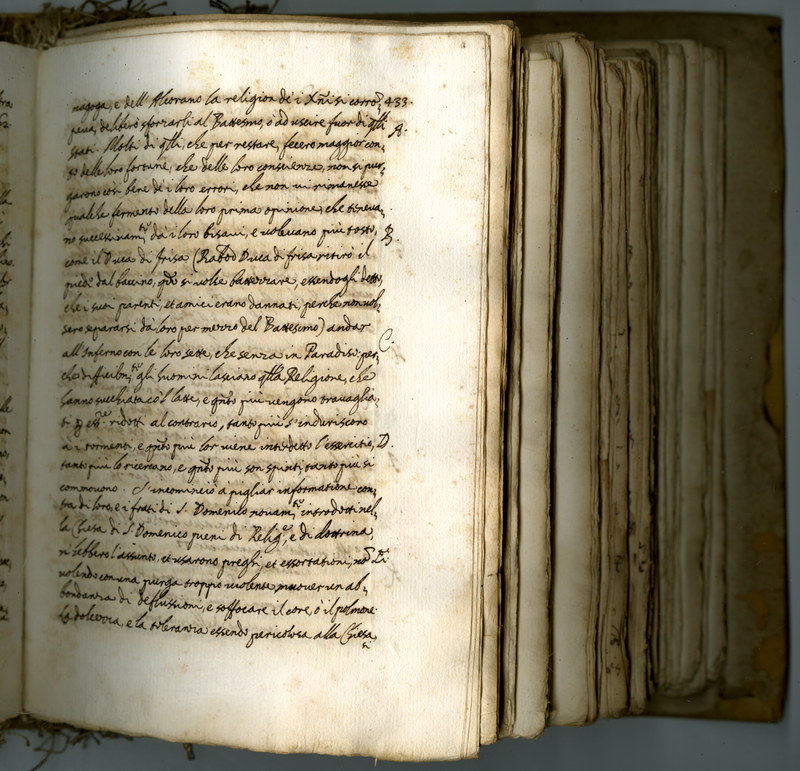 nagoga, e dell' Alcorano la religion de i Xñi si corrõ 433.
peva, deliberò sforzarli al Battesmo, ò ad uscire fuor di q̃lli A.
stati. Molti di q̃lli, che per restare, fecero maggior con,
to delle loro fortune, che delle loro conscienze, non si pur,
garono così bene de i loro errori, che non ui rimanesse
qualche fermento della loro prima opinione, che teneva,
no successivam.te da i loro bisavi, e uolevano più tosto, B.
come il Duca di Frisa (Rabod Duca di frisa ritirò il
piede dal baccino, q̃do si uolse battezzare, essendogli detto,
che i suoi parenti, et amici erano dannati, perche non uol,
sero separarsi da loro per mezzo del Battesimo) andar
all'Inferno con le loro sette, che senza in Paradiso: per, C.
che difficilm.te gli huomini lasciano q̃lla Religione, che
hanno succhiata co'l latte, e q̃nto più vengono travaglia,
ti p ess.e ridotti al contrario, tanto più s'induriscono
a i tormenti, e q̃nto più lor viene interdetto l'essercitio, D.
tanto più lo ricercano, e q̃nto più son spinti, tanto più si
commovono. S'incominciò à pigliar informatione con,
tra di loro, e i frati di S. Domenico novam.te introdotti nel,
la Chiesa di S. Domenico pieni di Relig.e, e di dottrina,
n'hebbero l'assunto, et usarono preghi, et essortationi, nõ
uolendo con una purga troppo uiolente muover un ab,
bondanza di deflussioni, e soffocare il core, ò il pulmone
La dolcezza, e la toleranza essendo pericolosa alla Chiesa
si